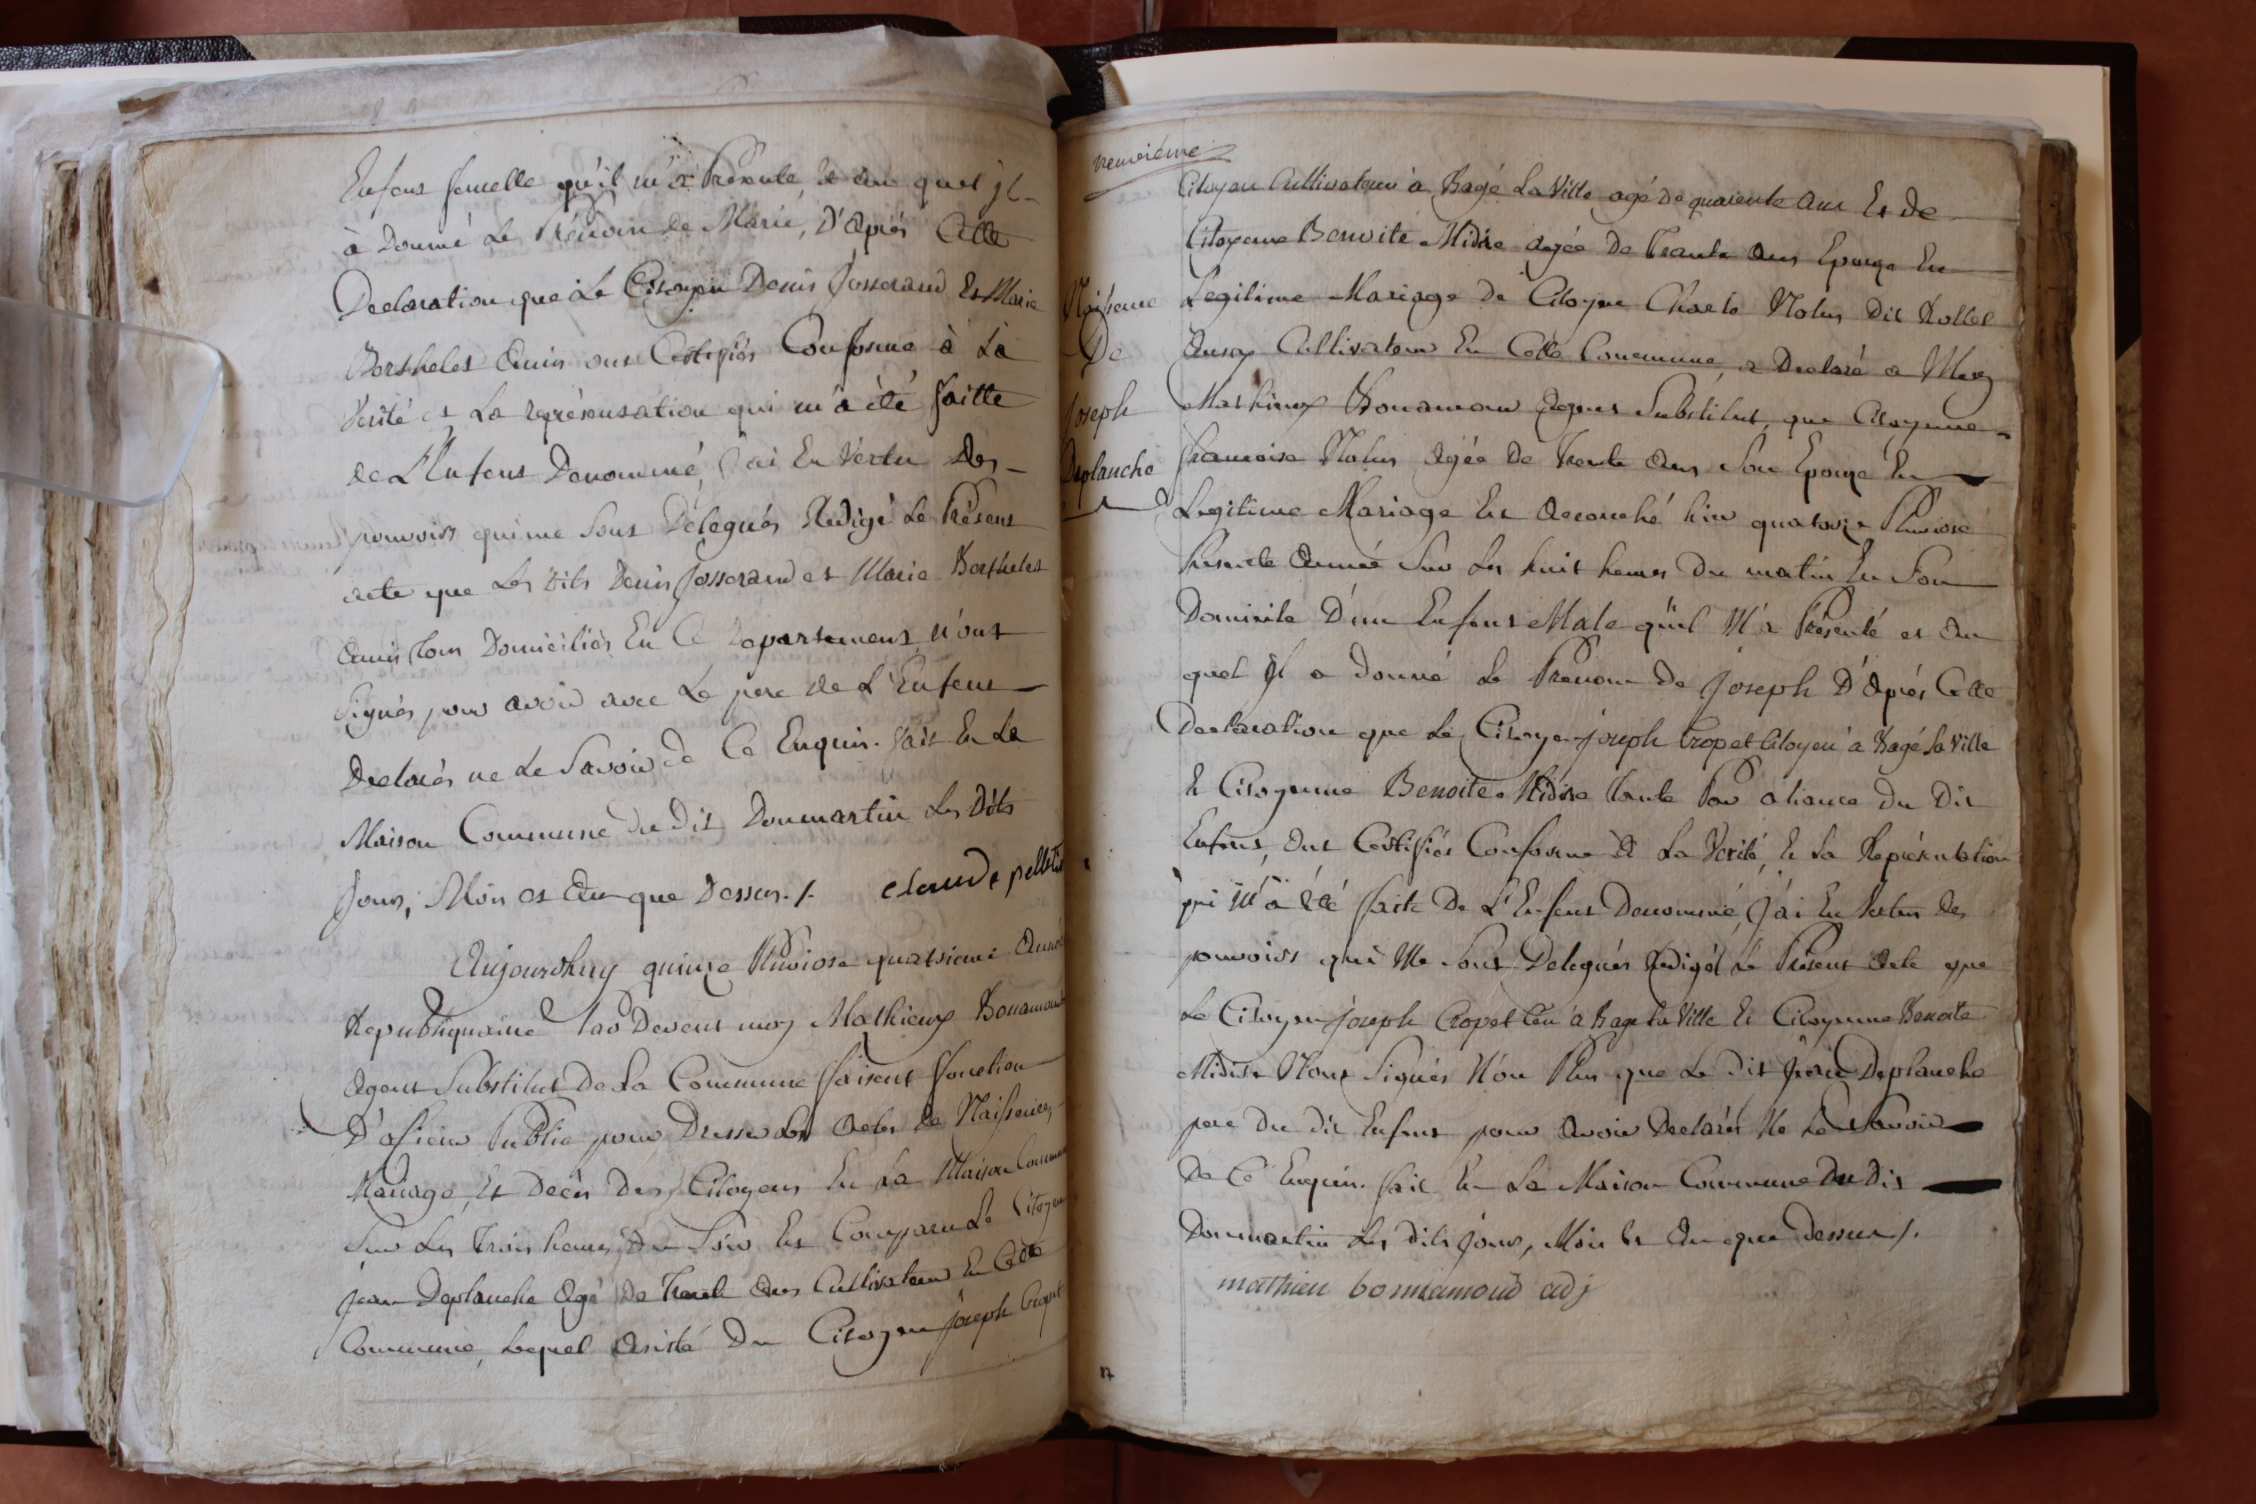 Enfens femelle qu'il m'a Présenté et au quel jl
à Donné Le Prénom de Marie, D'Apiés Cette
Declaration que Le Citoyen Denis Josserand Et Marie
Berthelet Amis ont Certifiés Conforme à La
Verité et La représentation qui m'a été faitte
de L'Enfens Denommé, J'ai En Vertu des
pouvoirs qui me sont Délegués Redigé Le Présent
acte que Les dits Denis Josserand et Marie Berthelet
Amis tous Domiciliés En Ce Departement n'ont
Signés pour avoir avec Le pere de L'Enfens
Declarés ne Le Savoir de Ce Enquis. fait En La
Maison Commune du dit Dommartin Les Dits
Jour, Mois et An que Dessus./. claude pelletie
Aujourdhuy quinze Pluviose quatrieme Année
Republiquaine Par Devent moy Mathieux Bonamour
Agent Substitut De La Commune faisent fonction
D'ofisier Public pour Dresser Les Actes de Naissences,
Mariage, Et Decès Des Citoyens En La Maison Commune
Sur Les Trois heures Du Soir Est Comparu Le Citoyen
jean Deplanche Agé De Trente Ans Cultivateur En Cette
Commune, Lequel Asisté Du Citoyen Joseph Cropet
neuvième
Citoyen Cultivateur à Bagé La Ville agé De quarente Ans Et De
Citoyenne Benoite Midire Agée De Trante Ans Epouze En
Legitime Mariage De Citoyen Charle Nolin Dit Rollet
Ausy Cultivateur En Cette Commune, a Declaré a Moy
Mathieux Bonamour Agent Substitut, que Citoyenne
francoise Nolin Agée De Trente Ans Son Epouze En
Legitime Mariage Est Accouché hier quatorze Pluviose
Présente Année Sur Les huit heures Du matin En Son
Domicile D'un Enfens Male qu'il M'a Présenté et Au
quel Jl a Donné Le Prénom De Joseph D'Apiés Cette
Declaration que Le Citoyen joseph Cropet Citoyen à Bagé La Ville
Et Citoyenne Benoite Midire Tante Par aliance Du Dit
Enfens, Ont Certifiés Conforme A La Verité, Et La Représentation
qui M'a été faite De L'Enfens Denommé, J'ai En Vertu Des
pouvoirs qui Me Sont Delegués Redigé Le Présent Acte que
Le Citoyen joseph Cropet Cen à Bagé La Ville Et Citoyenne Benoite
Midire N'ont Signés Non Plus que Le Dit Jean Deplanche
pere Du Dit Enfens pour Avoir Declarés Ne Le Savoir
De Ce Enquis. fait En La Maison Commune Du Dit
Dommartin Les Dits Jour, Mois Et An que Dessus /.
mathieu bonnamour adj
Naissence
De
Joseph
Deplanche